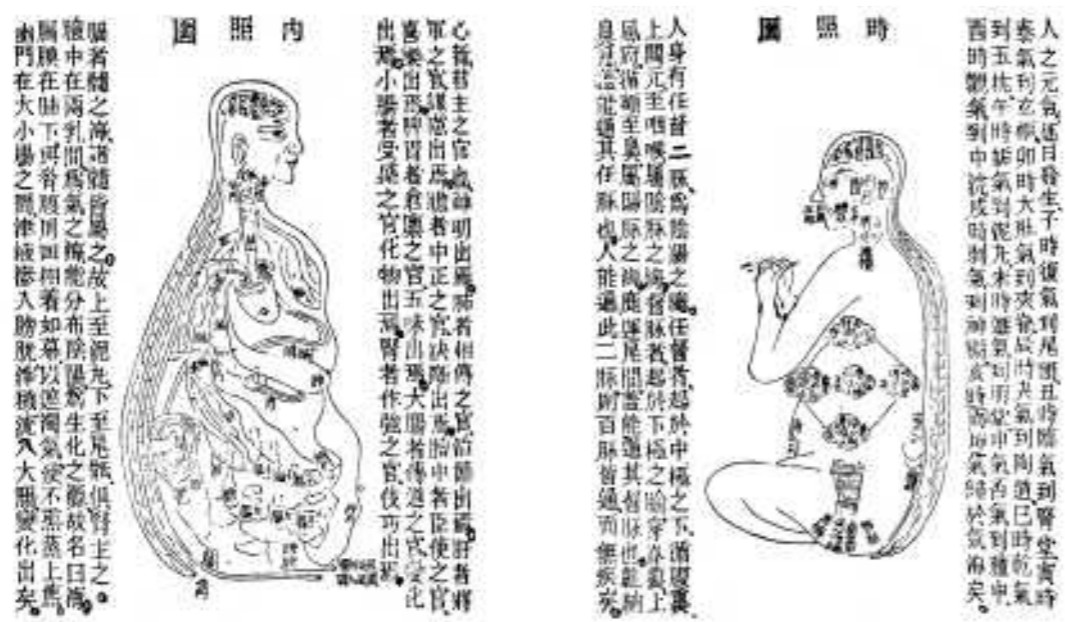 時照圖
人之元氣逐日發生子時復氣到尾閭丑時臨氣到腎堂寅時
泰氣到玄樞卯時大壯氣到夾脊辰時夬氣到陶道巳時乾氣
到玉枕午時姤氣到泥丸未時遯氣到明堂申氣否氣到膻中
酉時觀氣到中浣戌時剝氣到神闕亥時坤氣歸於氣海矣
人身有任督二脉為陰陽之總任督者起於中極之下循腹裏
上關元至咽喉屬陰脉之海督脉者起於下極之腧穿脊裏上
風府循額至鼻屬陽脉之海鹿運尾閭蓋能通其督脉也龜納
鼻息蓋能通其任脉也人能通此二脉則百脉皆通而無疾矣
內照圖
心者君主之官也神明出焉肺者相傅之官治節出焉肝者將
軍之官謀慮出焉膽者中正之官決斷出焉膻中者臣使之官
喜樂出焉脾胃者倉廩之官五味出焉大腸者傳道之官變化
出焉小腸者受盛之官化物出焉腎者作強之官伎巧出焉
腦者髓之海諸髓皆屬之故上至泥丸下至尾骶俱腎主之
膻中在兩乳間為氣之海能分布陰陽為生化之源故名曰海
膈膜在肺下與脅腹周回相着如幕以遮濁氣使不薰蒸上焦
幽門在大小腸之間津液滲入膀胱滓穢流入大腸變化出矣